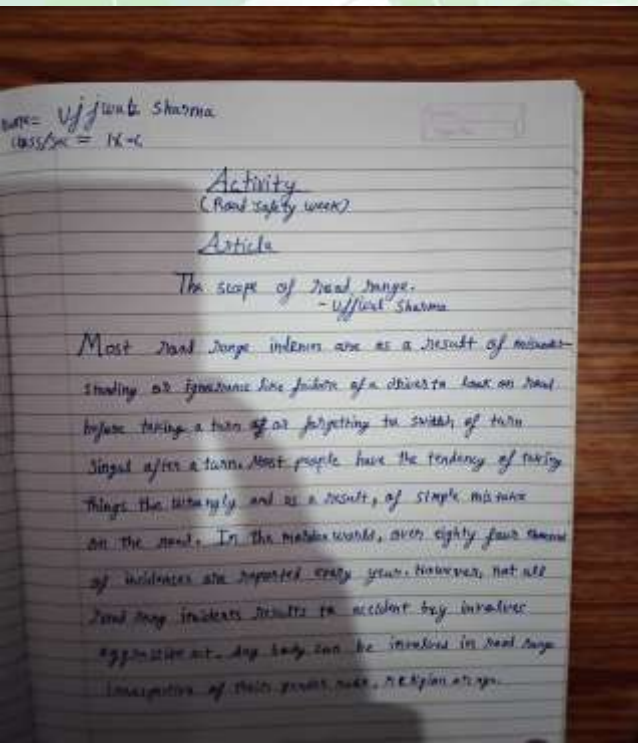 Name= Ujjwal Sharma
Class/Sec = IX-C
Activity
(Road Safety week)
Article
The scope of road range.
- Ujjwal Sharma
Most road range are as a result of
standing or like failure of a driver to look on road
before taking a turn of or forgetting to switch of turn
Singal after a turn. Most people have the tendency of taking
things the and as a result, of simple mistake
on the road. In the world, over eighty four
of incidences are reported every year. However, not all
road rang incidents results to accident involves
act. Any body can be involved in road range
of their gender, religion or age.